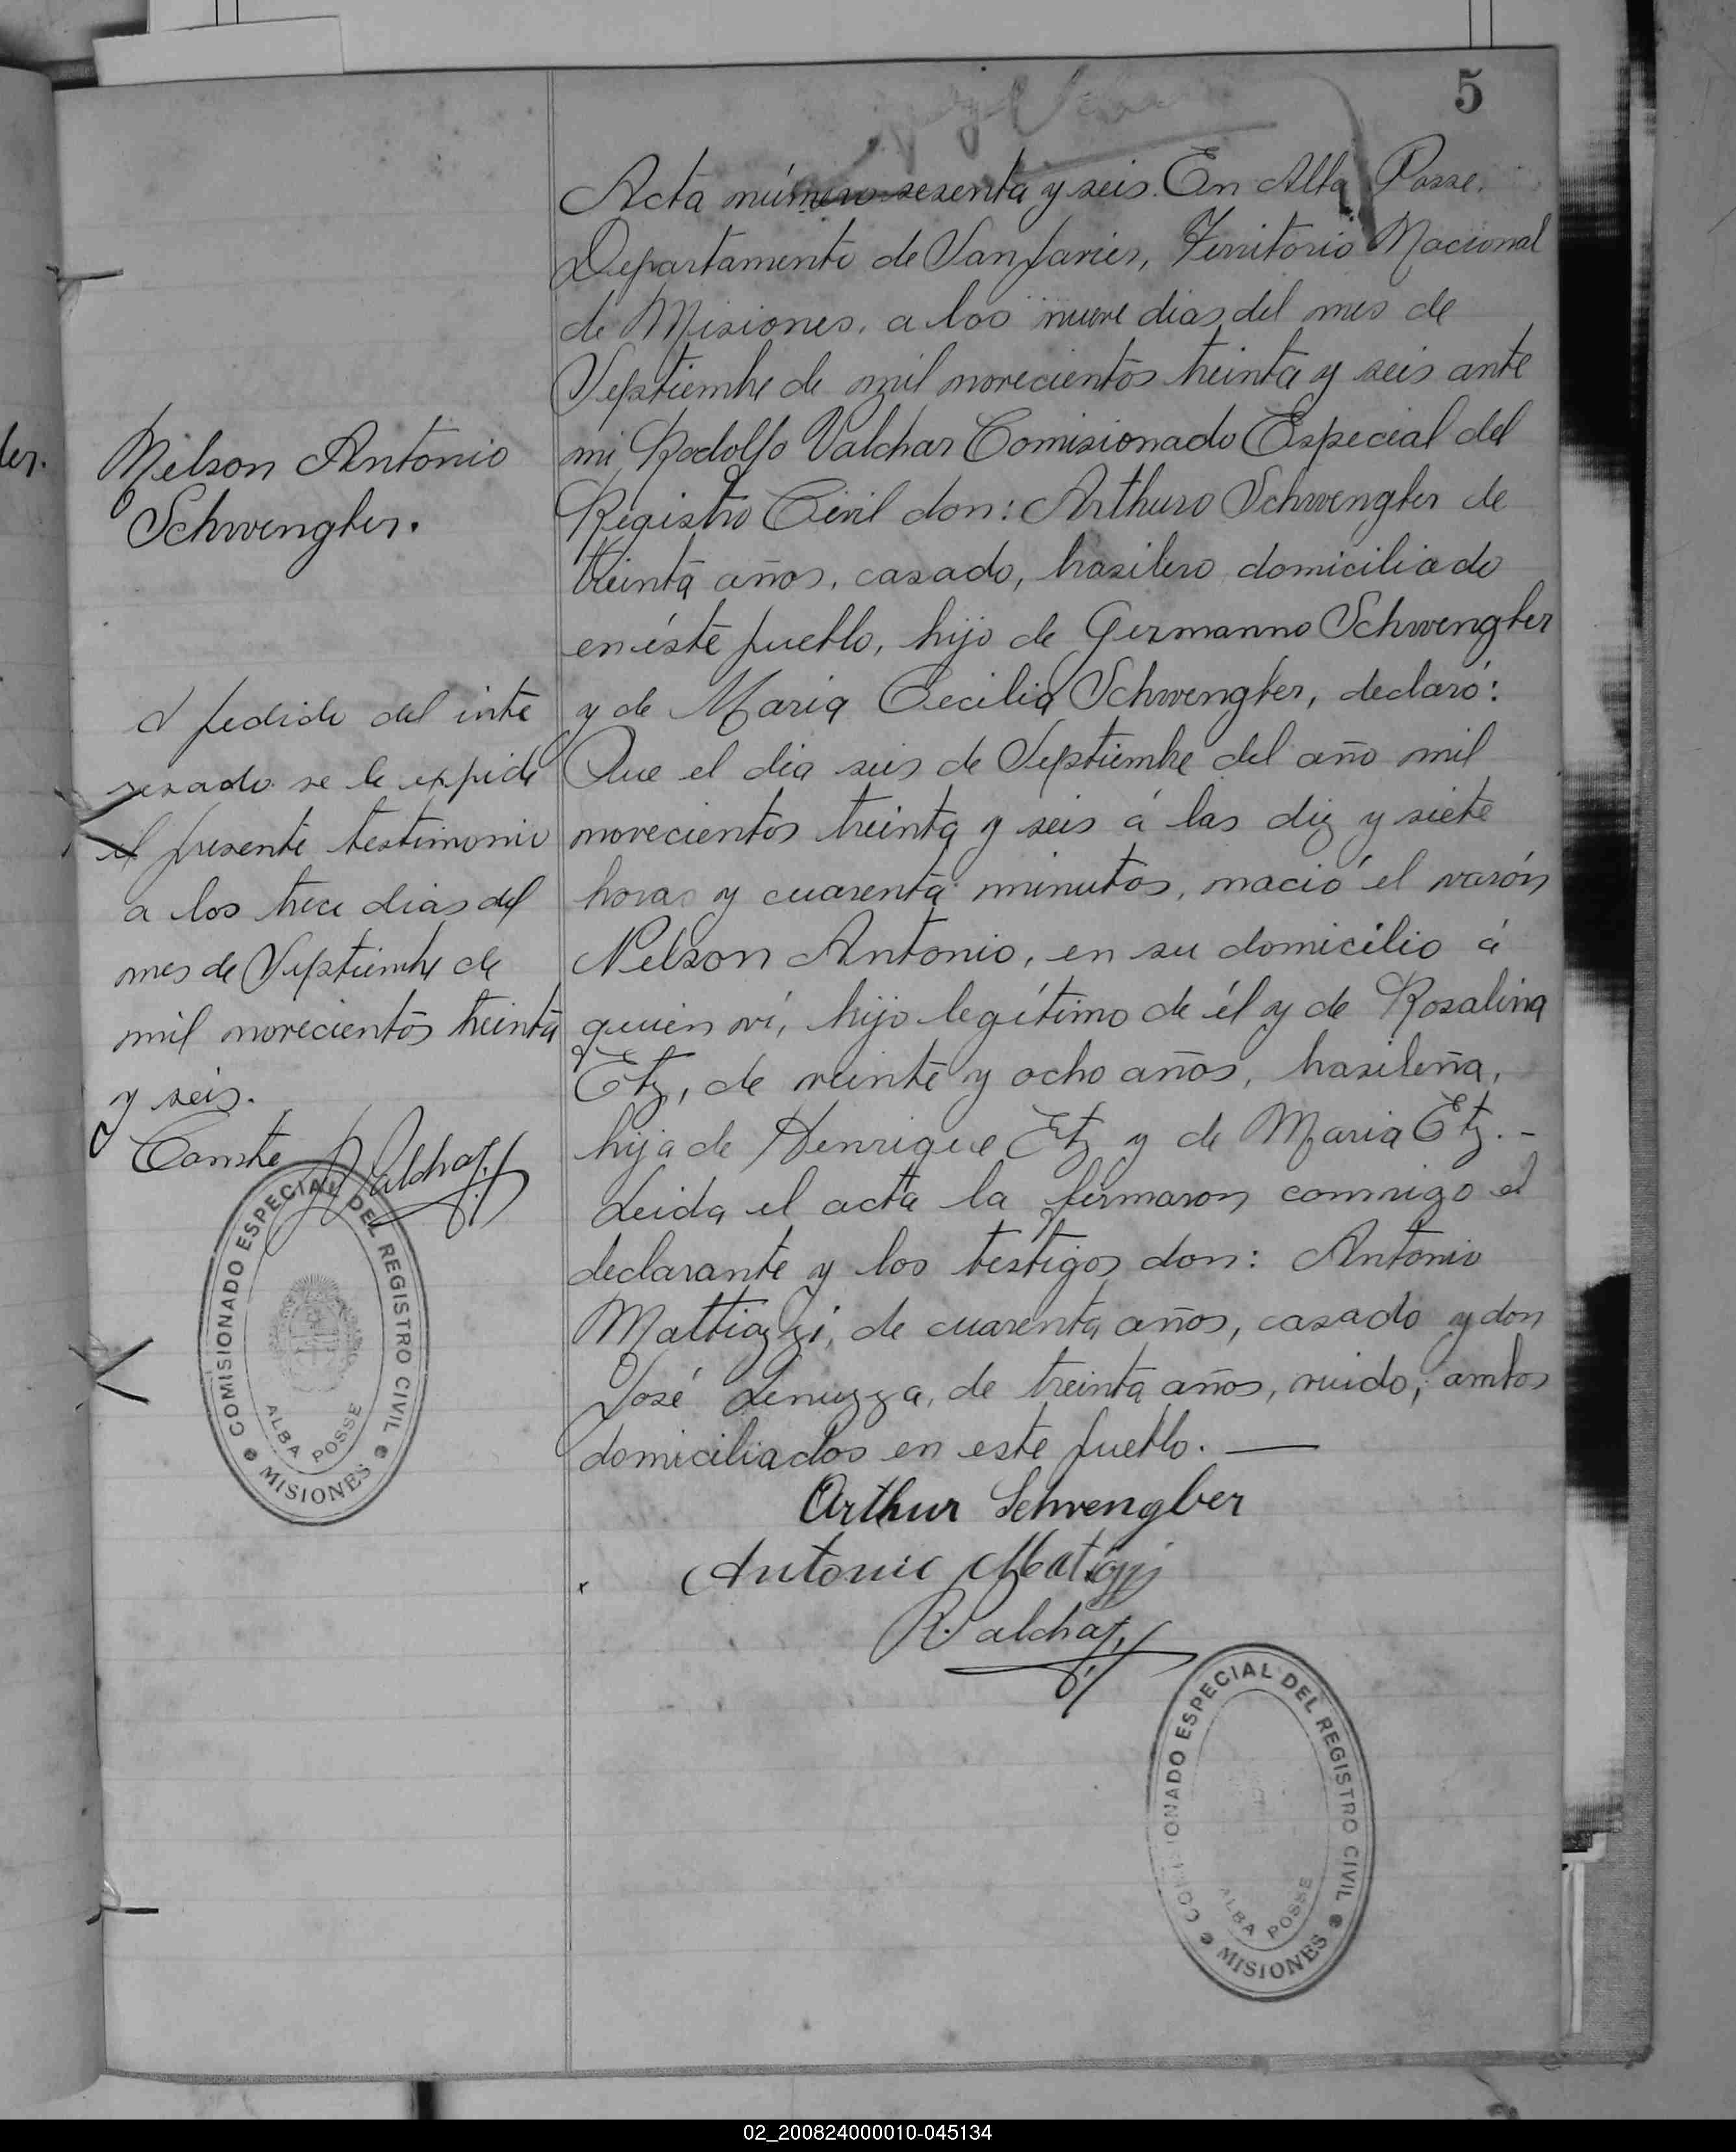 5
Acta número sesenta y seis. En Alba Posse,
Departamento de San Javier, Territorio Nacional
de Misiones, a los nueve dias del mes de
Septiembre de mil novecientos treinta y seis ante
mi Rodolfo Valchar Comisionado Especial del
Registro Civil don: Arthuro Schwengber de
treinta años, casado, brasilero domiciliado
en éste pueblo, hijo de Germanno Schwengber
y de Maria Cecilia Schwengber, declaró:
Que el dia seis de Septiembre del año mil
novecientos treinta y seis á las diez y siete
horas y cuarenta minutos, nació el varón
Nelson Antonio, en su domicilio á
quien ví, hijo legítimo de él y de Rosalina
Etz, de veinte y ocho años, brasileña,
hija de Henrique Etz y de Maria Etz. -
Leida el acta la firmaron conmigo el
declarante y los testigos don: Antonio
Mattiazzi, de cuarenta años, casado y don
José Lenuzza, de treinta años, viudo, ambos
domiciliados en este pueblo. —
Arthur Schwengber
Antonio Matiazzi
R. Valchar
COMISIONADO ESPECIAL DEL REGISTRO CIVIL
ALBA POSSE
MISIONES
Nelson Antonio
Schwengber.
A pedido del inte
resado se le expide
el presente testimonio
a los trece dias del
mes de Septiembre de
mil novecientos treinta
y seis.
Conste R. Valchar
COMISIONADO ESPECIAL DEL REGISTRO CIVIL
ALBA POSSE
MISIONES
ber.
02_200824000010-045134